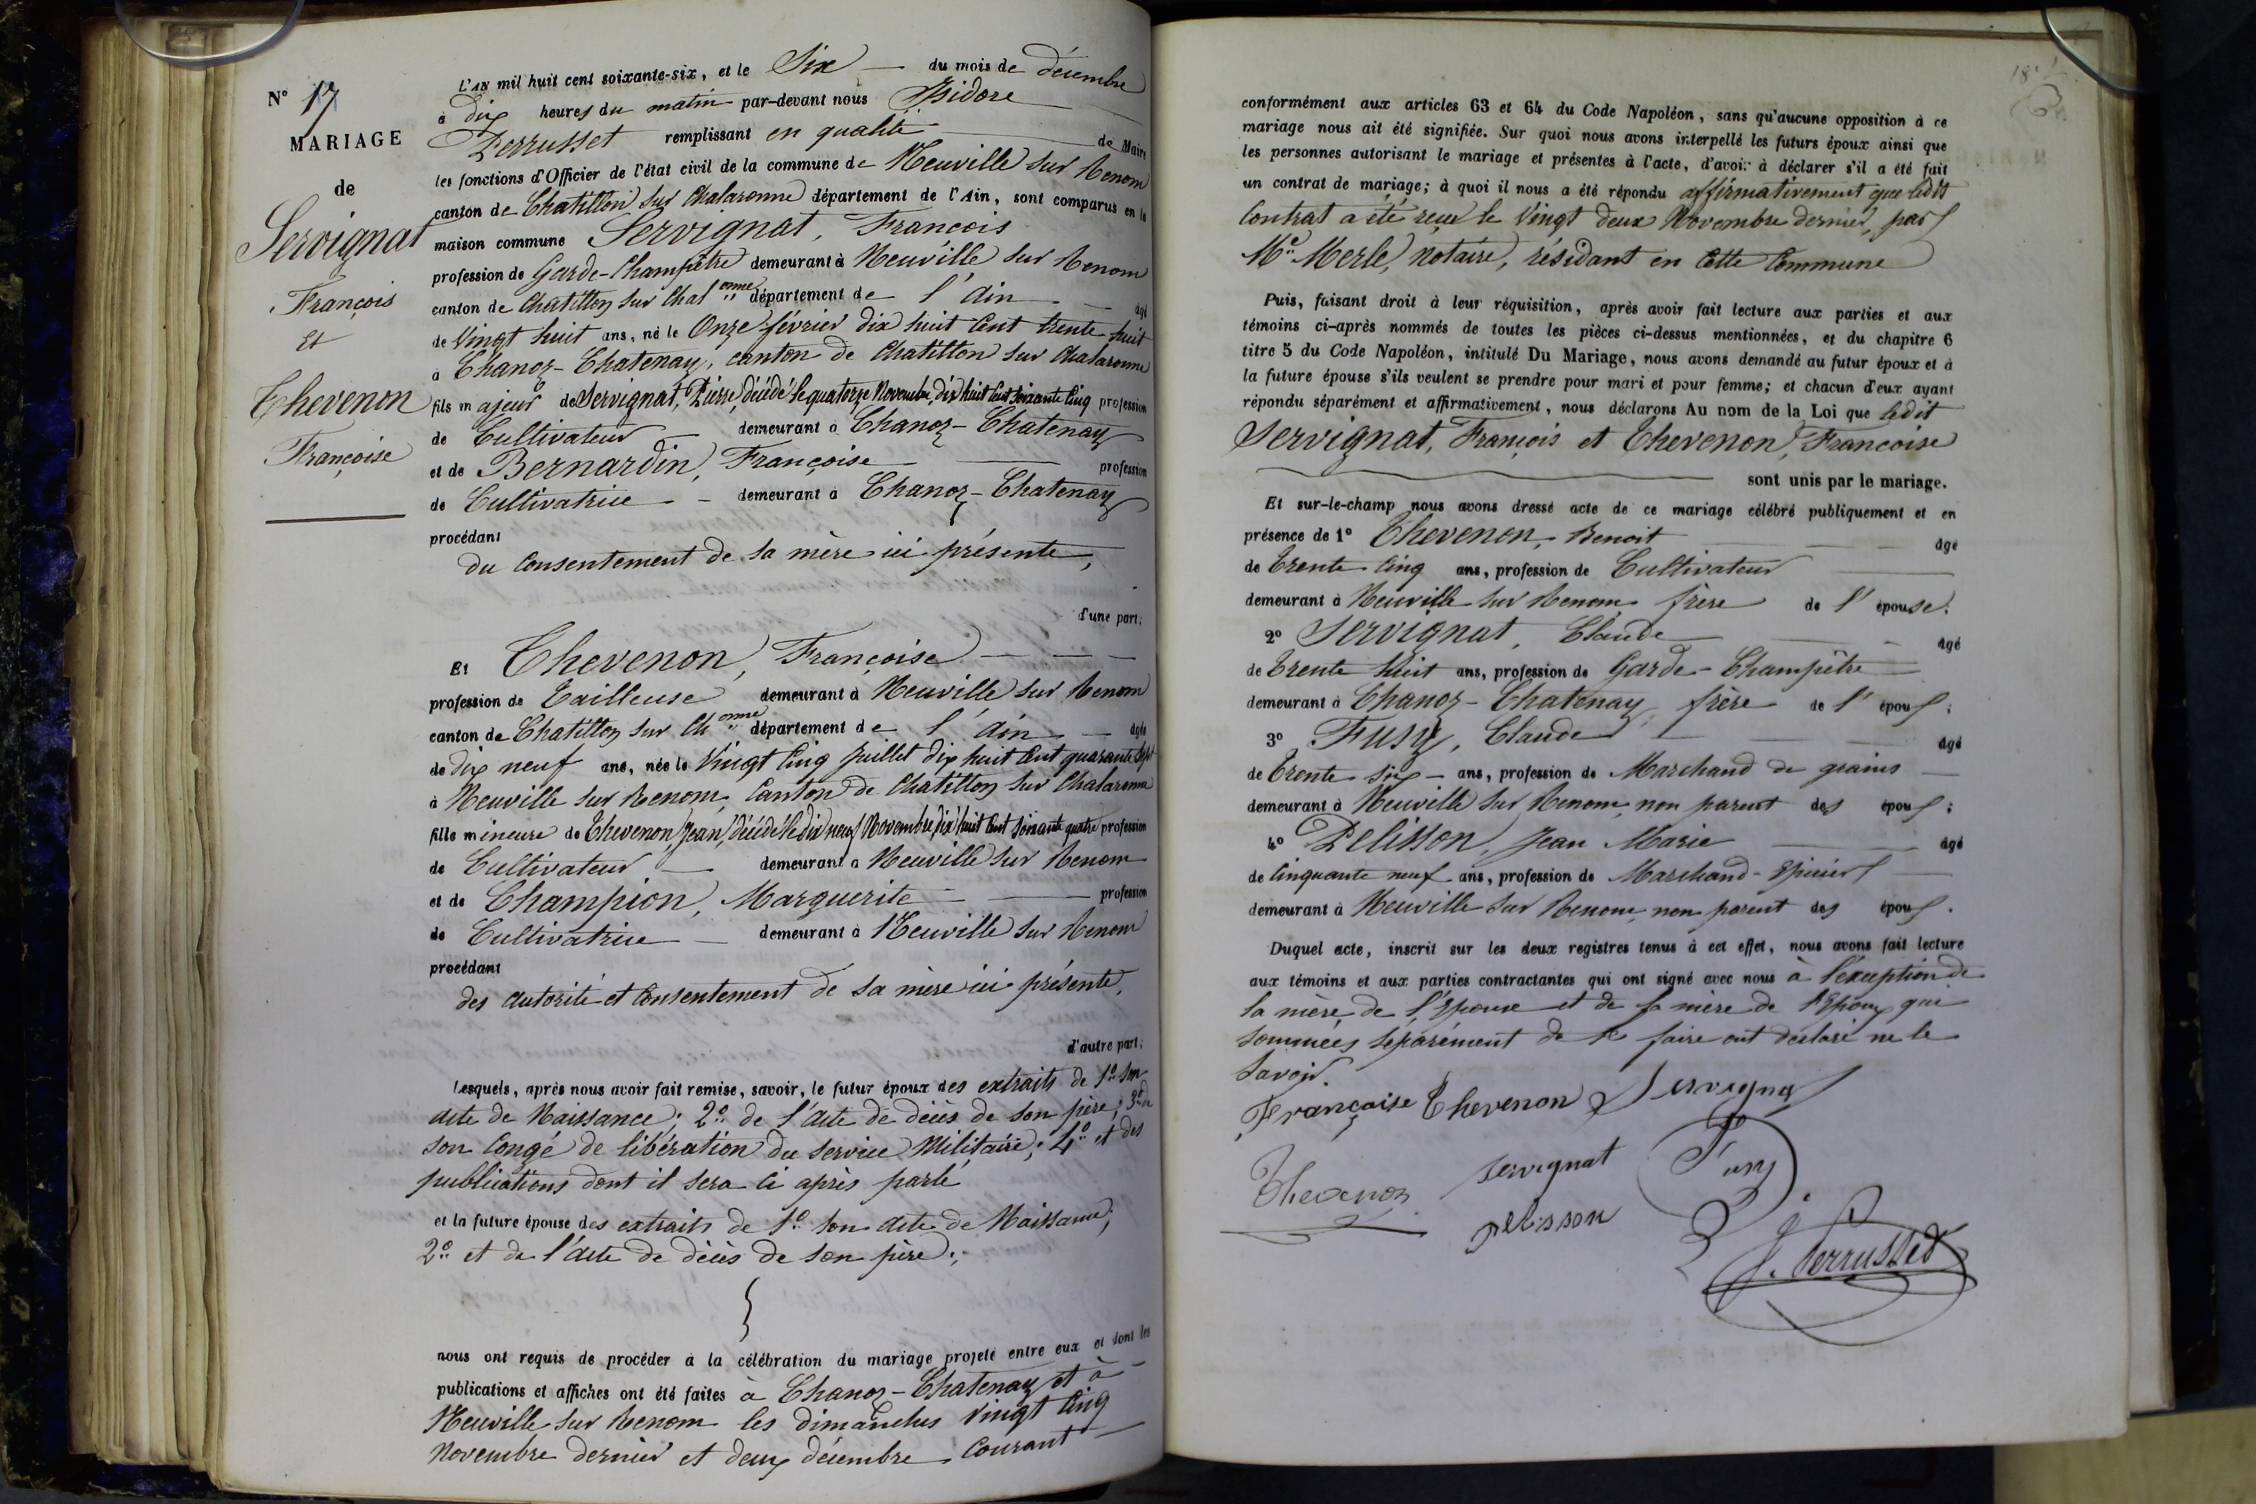 N° 17
MARIAGE
de
Servignat
François
Et
Thevenon
Françoise
L'AN mil huit cent soixante-six, et le Six du mois de décembre
à dix heures du matin par-devant nous Isidore
Perrusset remplissant en qualité de Maire
les fonctions d'Officier de l'état civil de la commune de Neuville sur Renom
canton de Chatillon sur Chalaronne département de l'Ain, sont comparus en la
maison commune Servignat, François
profession de Garde-Champêtre demeurant à Neuville sur Renom
canton de Chatillon sur Chalonne département de l'Ain âgé
de Vingt huit ans, né le Onze février dix huit Cent trente huit
à Chanoz-Chatenay, canton de Chatillon sur Chalaronne
fils majeur de Servignat, Pierre, décédé le quatorze Novembre, dix huit Cent soixante Cinq profession
de Cultivateur demeurant à Chanoz-Chatenay
et de Bernardin, Françoise profession
de Cultivatrice demeurant à Chanoz-Chatenay
procédant
du Consentement de sa mère ici présente,
d'une part;
Et Thevenon, Françoise
profession de Tailleuse demeurant à Neuville sur Renom
canton de Chatillon sur Chonne département de l'Ain âgée
de dix neuf ans, née le Vingt Cinq Juillet dix huit Cent quarante Sept
à Neuville sur Renom, Canton de Chatillon sur Chalaronne
fille mineure de Thevenon, Jean, décédé le dix neuf Novembre dix huit Cent soixante quatre profession
de Cultivateur demeurant à Neuville sur Renom
et de Champion, Marguerite profession
de Cultivatrice demeurant à Neuville sur Renom
procédant
des autorité et Consentement de sa mère ici présente,
d'autre part;
Lesquels, après nous avoir fait remise, savoir, le futur époux des extraits de 1° son
acte de Naissance; 2° de l'acte de décès de son père; 3° de
son Congé de libération du service Militaire; 4° et des
publications dont il sera ci après parlé
et la future épouse des extraits de 1° son acte de Naissance;
2° et de l'acte de décès de son père;
nous ont requis de procéder à la célébration du mariage projeté entre eux et dont les
publications et affiches ont été faites à Chanoz-Chatenay et à
Neuville sur Renom les dimanches Vingt Cinq
Novembre dernier et deux décembre Courant
conformément aux articles 63 et 64 du Code Napoléon, sans qu'aucune opposition à ce
mariage nous ait été signifiée. Sur quoi nous avons interpellé les futurs époux ainsi que
les personnes autorisant le mariage et présentes à l'acte, d'avoir à déclarer s'il a été fait
un contrat de mariage; à quoi il nous a été répondu affirmativement que ledit
Contrat a été reçu le Vingt deux Novembre dernier, par
Me Merle, Notaire, résidant en Cette Commune
Puis, faisant droit à leur réquisition, après avoir fait lecture aux parties et aux
témoins ci-après nommés de toutes les pièces ci-dessus mentionnées, et du chapitre 6
titre 5 du Code Napoléon, intitulé Du Mariage, nous avons demandé au futur époux et à
la future épouse s'ils veulent se prendre pour mari et pour femme; et chacun d'eux ayant
répondu séparément et affirmativement, nous déclarons Au nom de la Loi que ledit
Servignat, François et Thevenon, Françoise
sont unis par le mariage.
Et sur-le-champ nous avons dressé acte de ce mariage célébré publiquement et en
présence de 1° Thevenon, Benoit âgé
de Trente Cinq ans, profession de Cultivateur
demeurant à Neuville sur Renom, frère de l'épouse;
2° Servignat, Claude âgé
de Trente huit ans, profession de Garde-Champêtre
demeurant à Chanoz-Chatenay, frère de l'époux;
3° Fusy, Claude âgé
de Trente six ans, profession de Marchand de grains
demeurant à Neuville sur Renom, non parent des époux;
4° Pelisson, Jean Marie âgé
de Cinquante neuf ans, profession de Marchand-Epicier
demeurant à Neuville sur Renom, non parent des époux.
Duquel acte, inscrit sur les deux registres tenus à cet effet, nous avons fait lecture
aux témoins et aux parties contractantes qui ont signé avec nous à l'exception de
la mère de l'Epouse et de la mère de l'Epoux qui
sommées séparément de le faire ont déclaré ne le
savoir.
Françoise Thevenon Servignat
Thevenon servignat Fusy
pelisson J. Perrusset